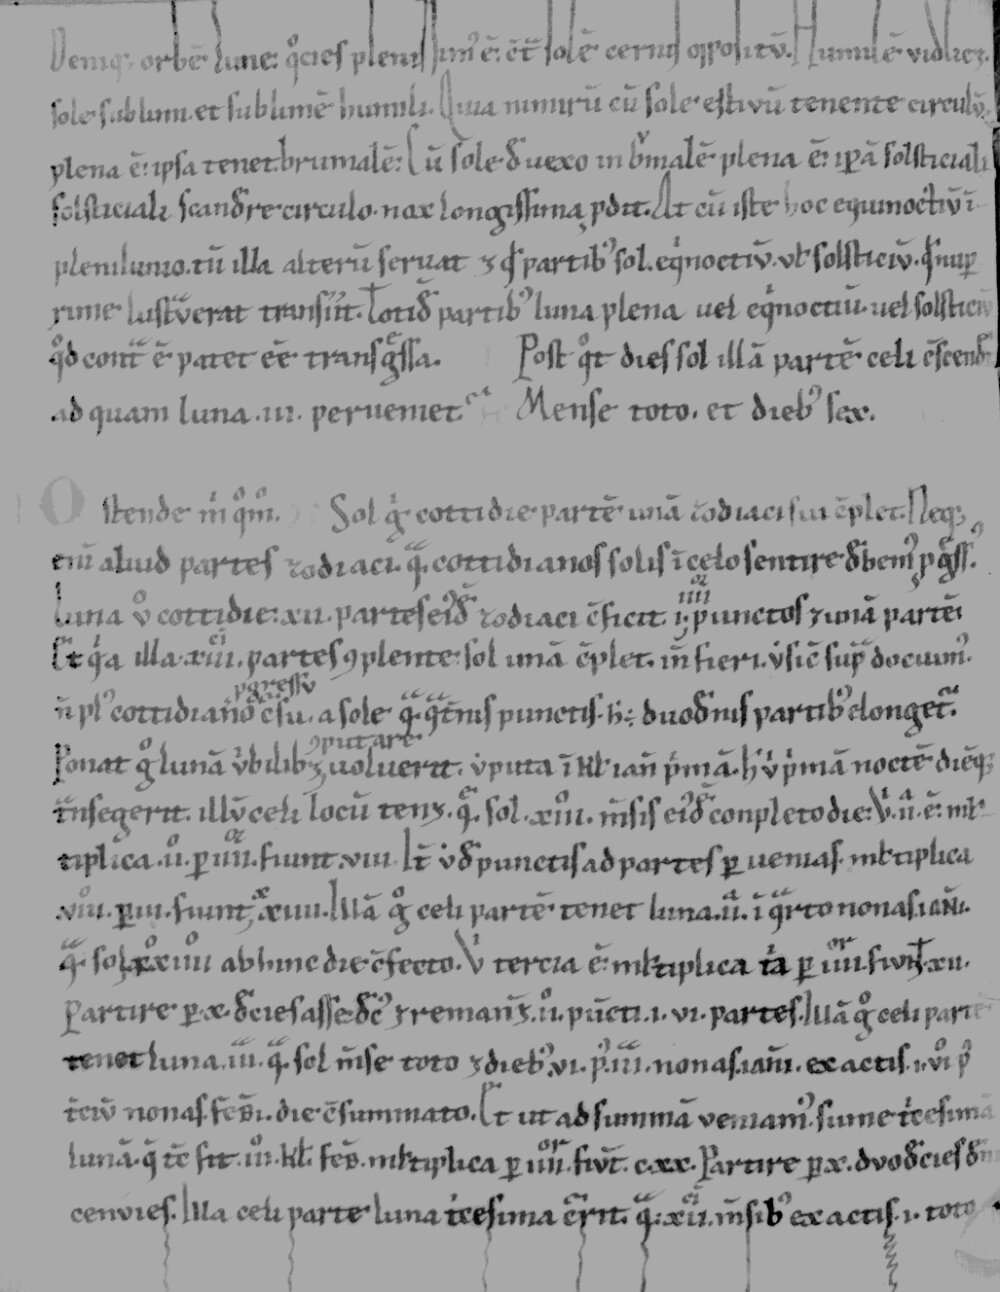 Deniq; orbē lune: q̊cies pleniſſim' ē: c̄t̄ ſolē cernis oppoſitū. Humilē vidlicȝ.
ſole ſublimi. et ſublimē humili. Quia nimirū cū ſole eſtivū tenente circulū.
plena ē: ipſa tenet brumalē: Cū ſole đuexo in b'malē plena ē: ip̄ā ſolſticiali
ſolſticiali ſcanđre circulo. nox longiſſima p̄dit. At cū iſte hoc equinoctiū ī
plenilunio. tū illa alterū ſeruat ⁊ q̄ partib' ſol. eq̇noctiū. ul' ſolſticiū. nup
rime luſtᷓverat tranſiīt. Totiđ partib' luna plena uel eq̇noctiū. uel ſolſticiū
q̊d cont̄ ē patet eē tranſgᷓſſa. Poſt q̊t dieſ ſol illā partē celi c̄ſcendit
ad quam luna .iii. perueniet. Menſe toto. et dieb' ſex.
Oſtende m̍ q̊m̊. Sol g̍ cottidie partē unā zodiaci ſui c̄plet. Neq;
eni aliud parteſ zodiaci. q̄ cottidianoſ ſoliſ ī celo ſentire đbem' p̄gᷓſſ'.
Luna v̊ cottidie: xii. parteſ eiđ zodiaci c̄ficit. i. punctoſ ⁊ unā partē
Et q̍a illa .xiii. parteſ 9plente: ſol unā c̄plet. in̄ fieri. v̍ſic̄ ſup̄ docuim'.
n̄ pl' cottidiano c̄ſu p̄greſſu. a ſole q̄ q̄t̄niſ punctiſ. h̄: duođniſ partib' elonget̄.
Ponat g̊ lunā v̍bilib; uoluerit 9putare. v̍puta ī kł ian̄ p̍mā. p̍mā noctē diēq;
t̄nſegerit. illū celi locū tenȝ. q̄ ſol .xiii. m̄ſiſ eiđ conpleto die: V̍ .ii. ē: mł
tiplica .ii. p .iiii. fiunt .viii. punctiſ ad parteſ p ueniaſ. młtiplica
.viii. p iii. fiunt; xxiiii. Illā g̊ celi partē tenet luna .ii. ī q̄rto nonaſ ian̄i.
q̄ ſol xxiiii ab hinc die c̄fecto. V̍ tercia ē: młtiplica p iiii. fiunt xii.
Partire p x. đcieſ aſſe ⁊ reman̄; ii. pu̅cti. i. vi. parteſ. Illā g̊ celi parte
tenet luna .iii. q̄ ſol m̄ſe toto ⁊ dieb' .vi. p̍ .iii. nonaſ .ian̄i. exactiſ .i.
t̄ciū nonaſ feƀi. die c̄ſummato. Et ut ad ſummā veniam'. ſume t̍ceſimā
lunā. q̄ t̄c ſit .iii. kł feƀ. młtiplica p iiii. fiūt. c.xx. Partire p x. duođcieſ đni
cenvieſ. Illa celi parte luna t̍ceſima c̄rit. q̄ .xii. m̄ſib' exactiſ .i. toto